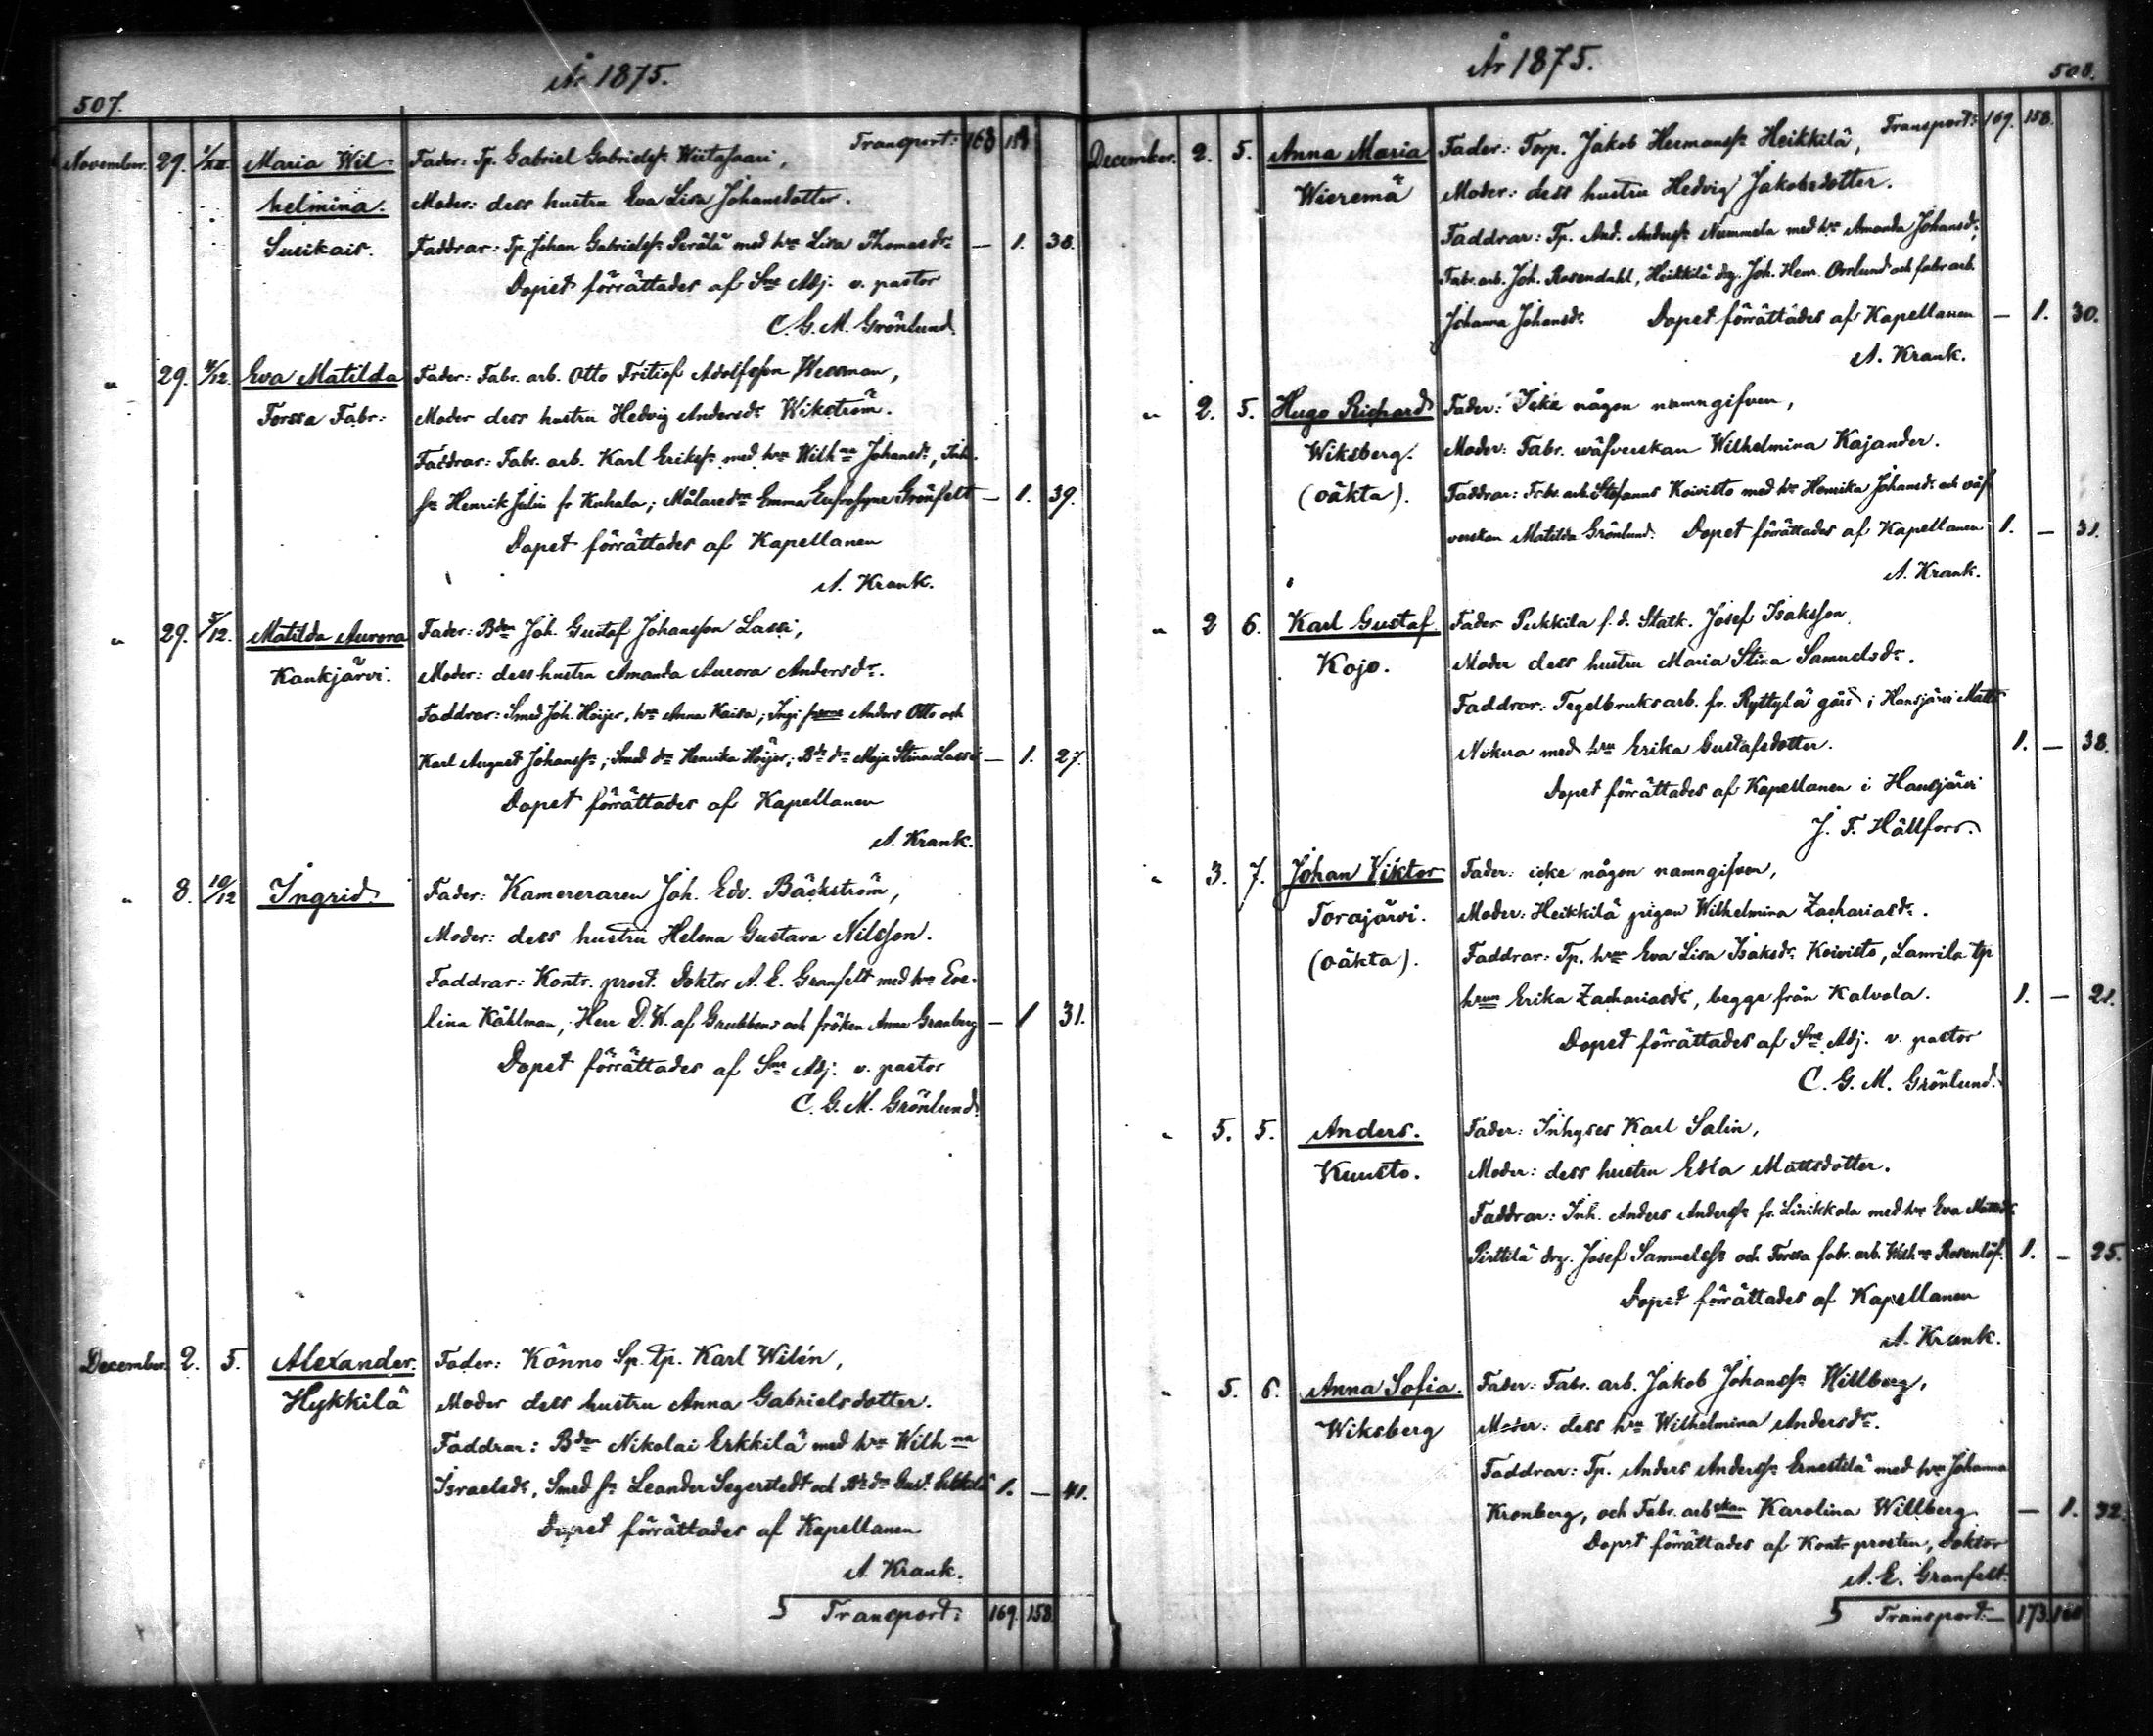 507.
År 1875.
Transport: 168 154
November. 29. 1/XII. Maria Wil- Fader: Tp. Gabriel Gabrielss: Wiitasaari,
helmina. Moder: dess hustru Eva Lisa Johansdotter.
Susikais. Faddrar: Tp. Johan Gabrielss: Perälä med hu Lisa Thomasdr — 1. 38.
Dopet förrättades af Sne Adj. v. pastor
C. G. M. Grönlund.
" 29. /12. Eva Matilda Fader: Fabr. arb. Otto Fritiof Adolfsson Wessman,
Forssa Fabr: Moder dess hustru Hedvig Andersdr Wikström.
Faddrar: Fabr. arb. Karl Erikss: med hu Wilhna Johansdr, Inh.
sn Henrik Julin fr Kuhala; Målaredn Emma Eufrosyne Grönfelt — 1. 39.
Dopet förrättades af Kapellanen
A. Krank.
" 29. 5/12. Matilda Aurora Fader: Bden Joh. Gustaf Johansson Lassi,
Kaukjärvi. Moder: dess hustru Amanda Aurora Andersdr.
Faddrar: Smed Joh. Höijer, hu Anna Kaisa; Anders Otto och
Karl August Johanss:; Smed dn Henrika Höijer; Bde dn Maja Stina Lassi — 1. 27.
Dopet förrättades af Kapellanen
A. Krank.
" 8. 10/12 Ingrid Fader: Kamereraren Joh. Edv. Bäckström,
Moder: dess hustru Helena Gustava Nilsson.
Faddrar: Kontr. prost. Doktor A. E. Granfelt med hu Eve-
lina Kählman, Herr D. W. af Grubbens och fröken Anna Granberg — 1 31.
Dopet förrättades af Sne Adj. v. pastor
C. G. M. Grönlund.
December. 2. 5. Alexander. Fader: Könno Sp. tp. Karl Wilén,
Hykkilä Moder dess hustru Anna Gabrielsdotter.
Faddrar: Bden Nikolai Erkkilä med hu Wilhna
Israelsdr, Smed sn Leander Segerstedt och Bde dn Gust. Erkkilä 1. — 41.
Dopet förrättades af Kapellanen
A. Krank.
5 Transport: 169. 158.
År 1875.
508.
Transport: 169. 158.
December. 2. 5. Anna Maria Fader: Torp. Jakob Hermanss: Heikkilä,
Wieremä Moder: dess hustru Hedvig Jakobsdotter.
Faddrar: Tp. And. Anderss: Nummela med hu Amanda Johansdr,
Fabr. arb. Joh. Rosendahl, Heikkilä drg. Joh. Henr. och fabr arb.
Johanna Johansdr. Dopet förrättades af Kapellanen — 1. 30.
A. Krank.
" 2. 5. Hugo Richard Fader: Icke någon namngifven,
Wiksberg. Moder: Fabr. wäfverskan Wilhelmina Kajander.
(oäkta). Faddrar: Fabr. arb. Stefanus Koivisto med hu Henrika Johansdr och väf
verskan Matilda Grönlund. Dopet förrättades af Kapellanen 1. — 31.
A. Krank.
" 2 6. Karl Gustaf. Fader Pukkila f. d. Statk. Josef Isaksson.
Kojo. Moder dess hustru Maria Stina Samuelsdr.
Faddrar: Tegelbruksarb. fr. Ryttylä gård i Hausjärvi Matts
Nokua med hu Erika Gustafsdotter. 1. — 38.
Dopet förrättades af Kapellanen i Hausjärvi
J. F. Hällfors.
" 3. 7. Johan Viktor Fader: icke någon namngifven,
Torajärvi. Moder: Heikkilä pigan Wilhelmina Zachariasdr.
(oäkta). Faddrar: Tp. hun Eva Lisa Isaksdr Koivisto, Lamila tp
hun Erika Zachariasdr, begge från Kalvola. 1. — 21.
Dopet förrättades af Sne Adj. v. pastor
C. G. M. Grönlund.
" 5. 5. Anders. Fader: Inhyses Karl Salin,
Kuusto. Moder: dess hustru Edla Mattsdotter.
Faddrar: Inh. Anders Anderss: fr. Linikkala med hu Eva Mattsdr
Pirttilä drg. Josef Samuelss: och Forssa fabr. arb. Wilhna Rosenlöf. 1. — 25.
Dopet förrättades af Kapellanen
A. Krank.
" 5. 6. Anna Sofia. Fader: Fabr. arb. Jakob Johanss: Willberg,
Wiksberg Moder: dess hu Wilhelmina Andersdr.
Faddrar: Tp. Anders Anderss: Ernestilä med hu Johanna
Kronberg, och Fabr. arbskan Karolina Willberg — 1. 32.
Dopet förrättades af Kontr prosten, Doktor
A. E. Granfelt.
5 Transport: — 173. 160